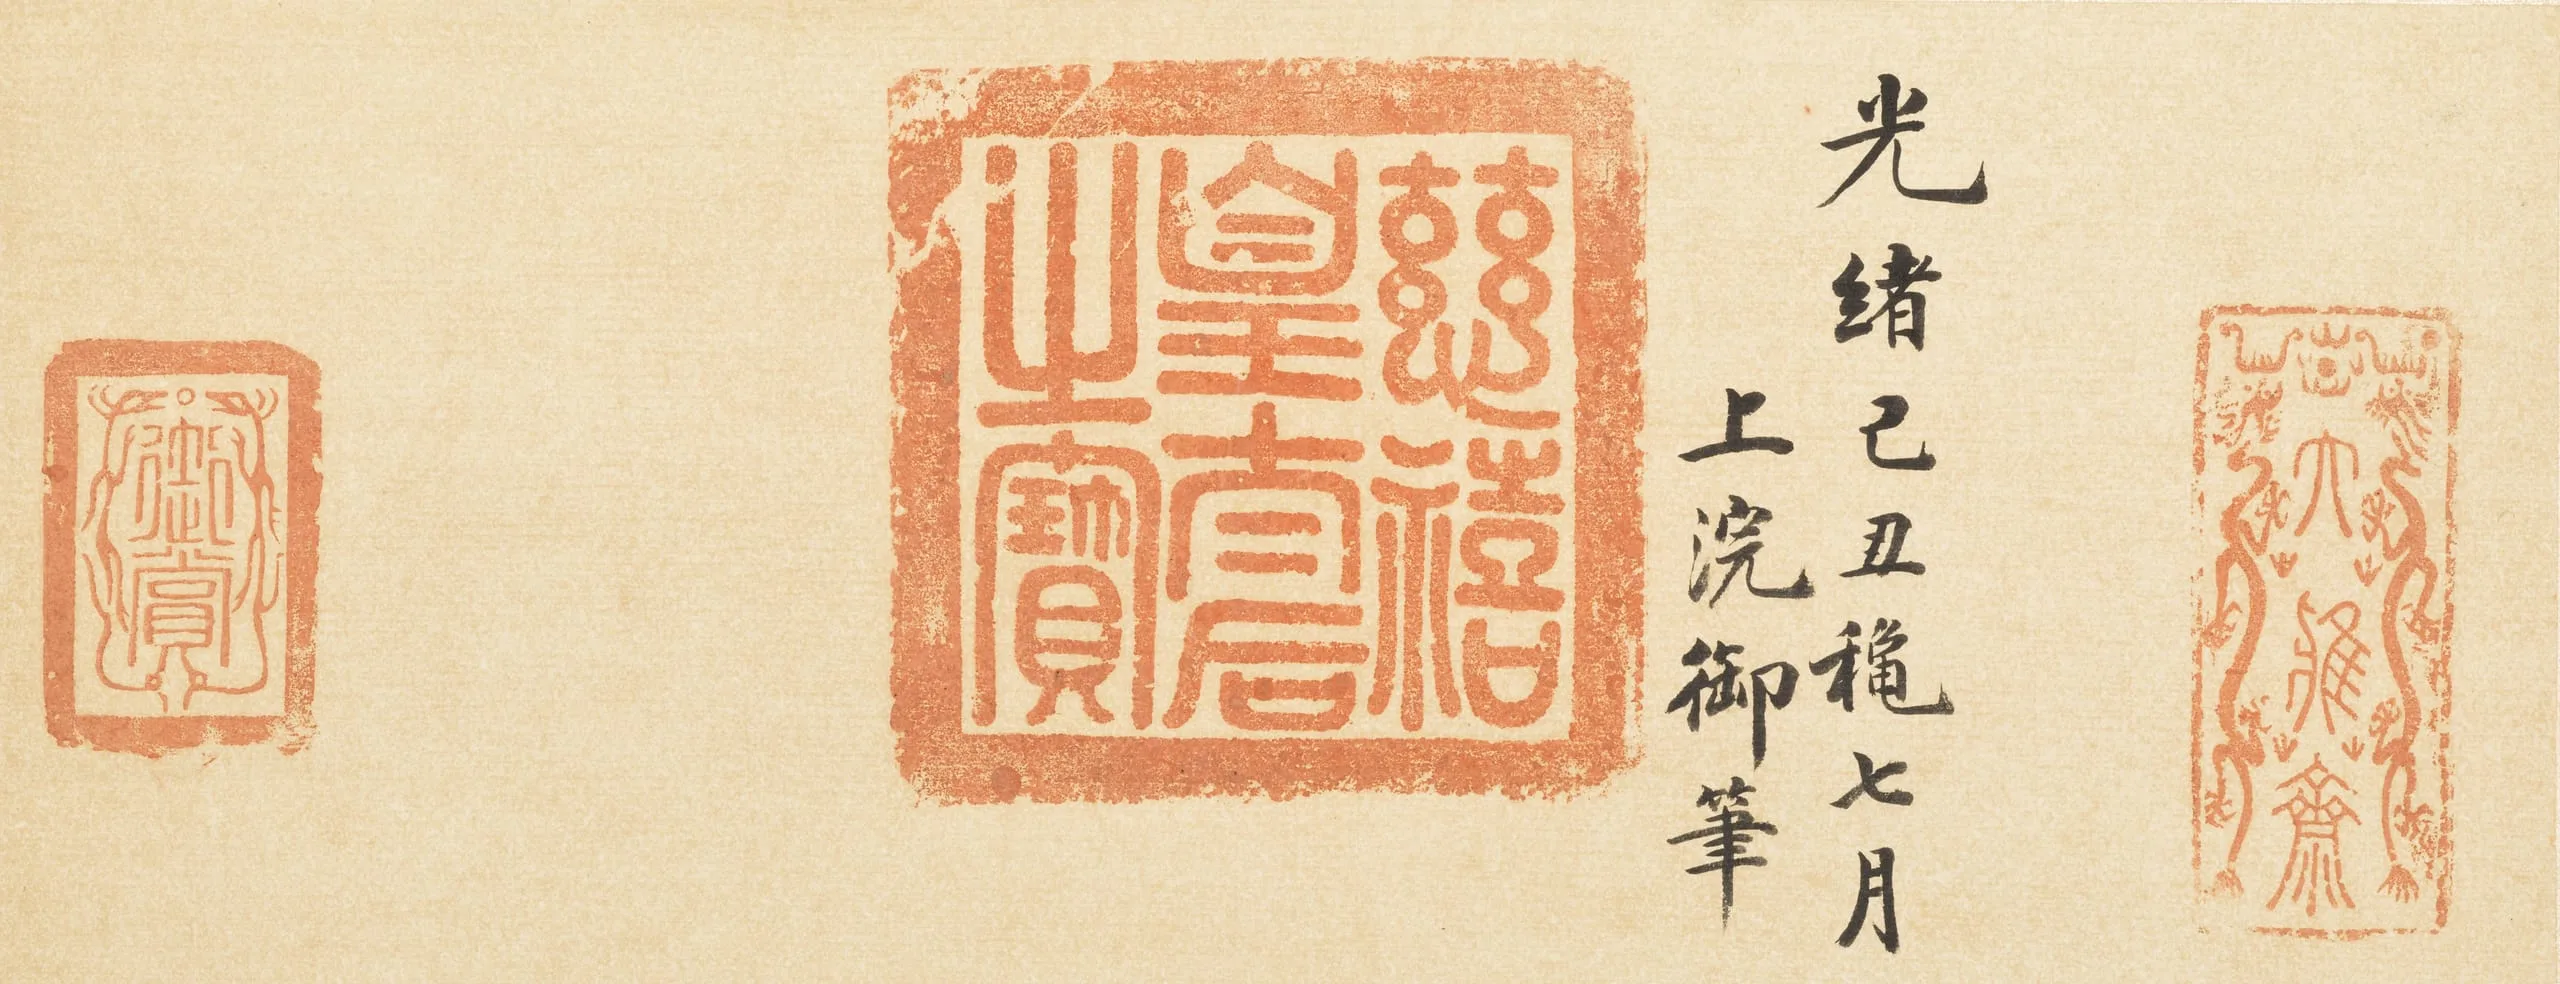 大雅齋
光緒己丑穐七月
上浣御筆
慈禧
皇太后
之寶
御賞